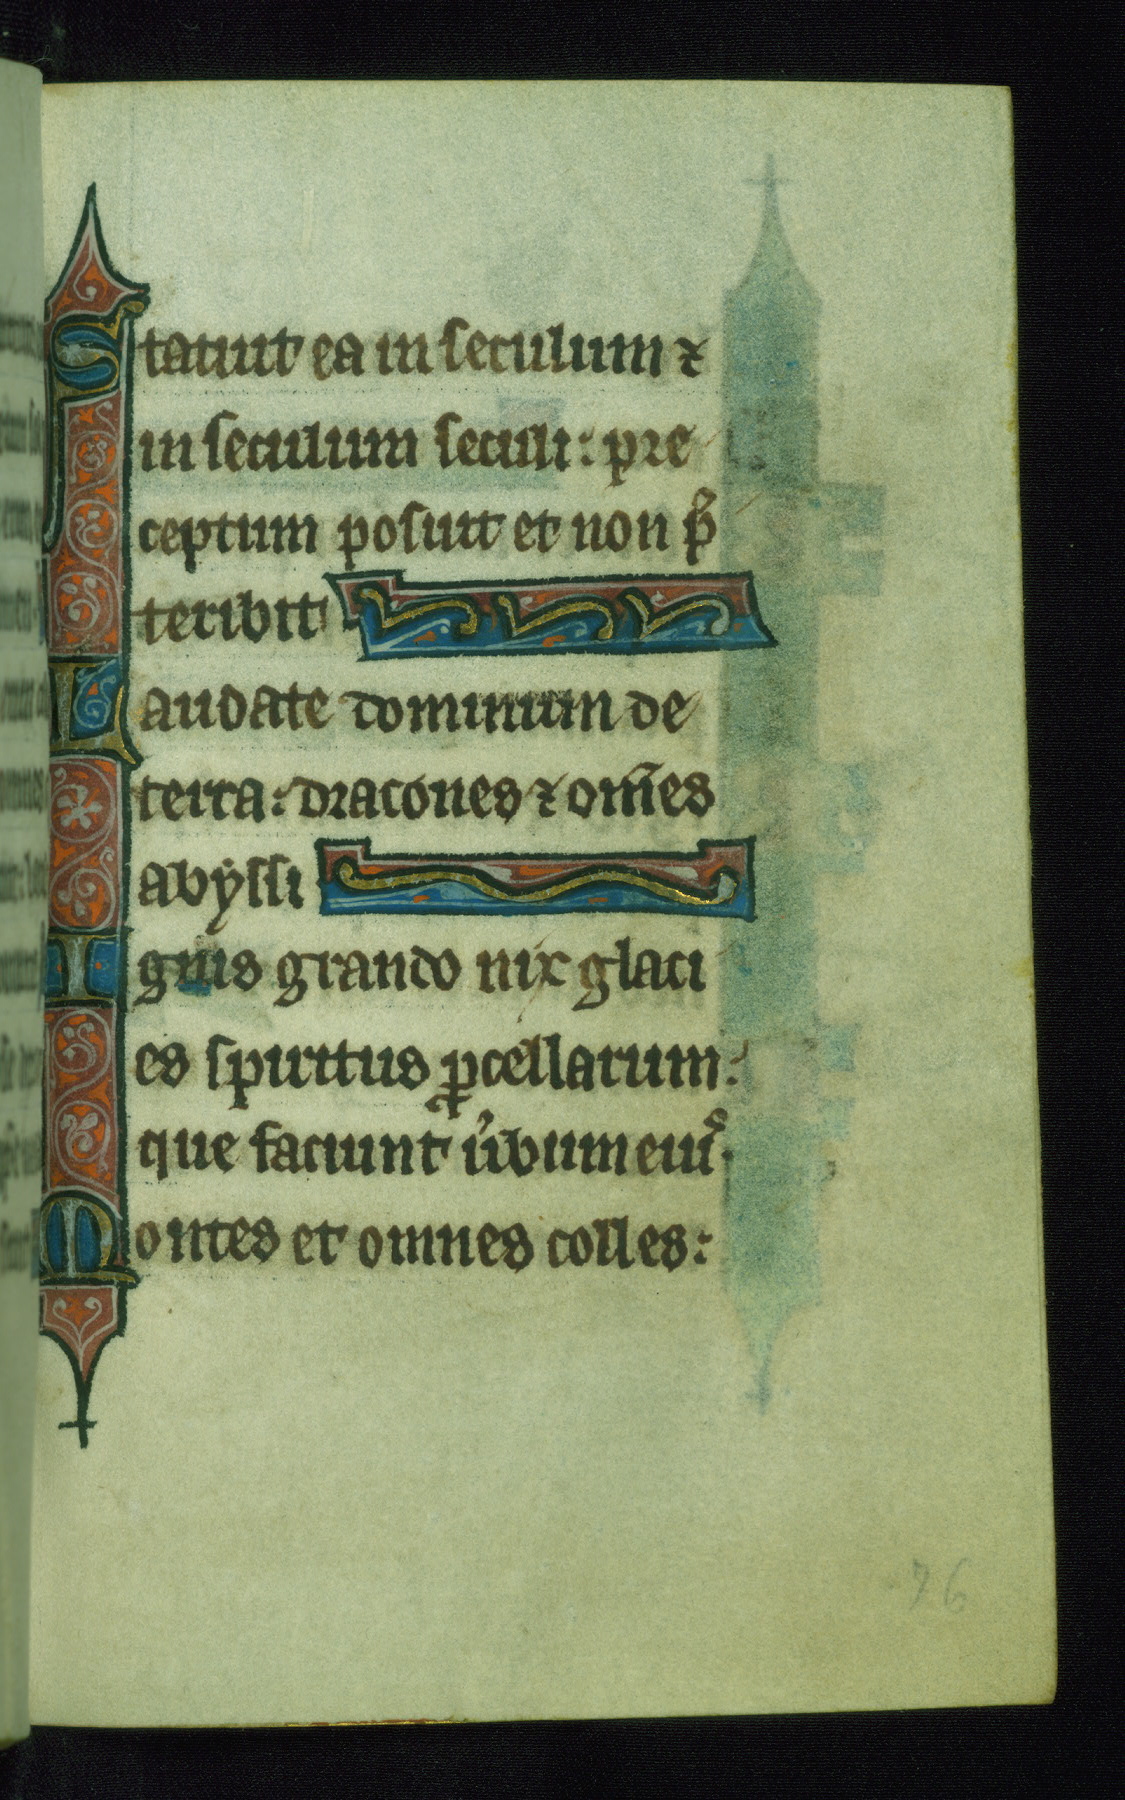 Statuit ea in seculum ⁊
in seculum seculi: pre
ceptum posuit et non p̄
teribit
Laudate dominum de
terra: dracones ⁊ om̄es
abyssi
Ignis grando nix glaci
es spiritus ꝓcellarum:
que faciunt u̓bum eiuꝰ.
Montes et omnes colles:
76